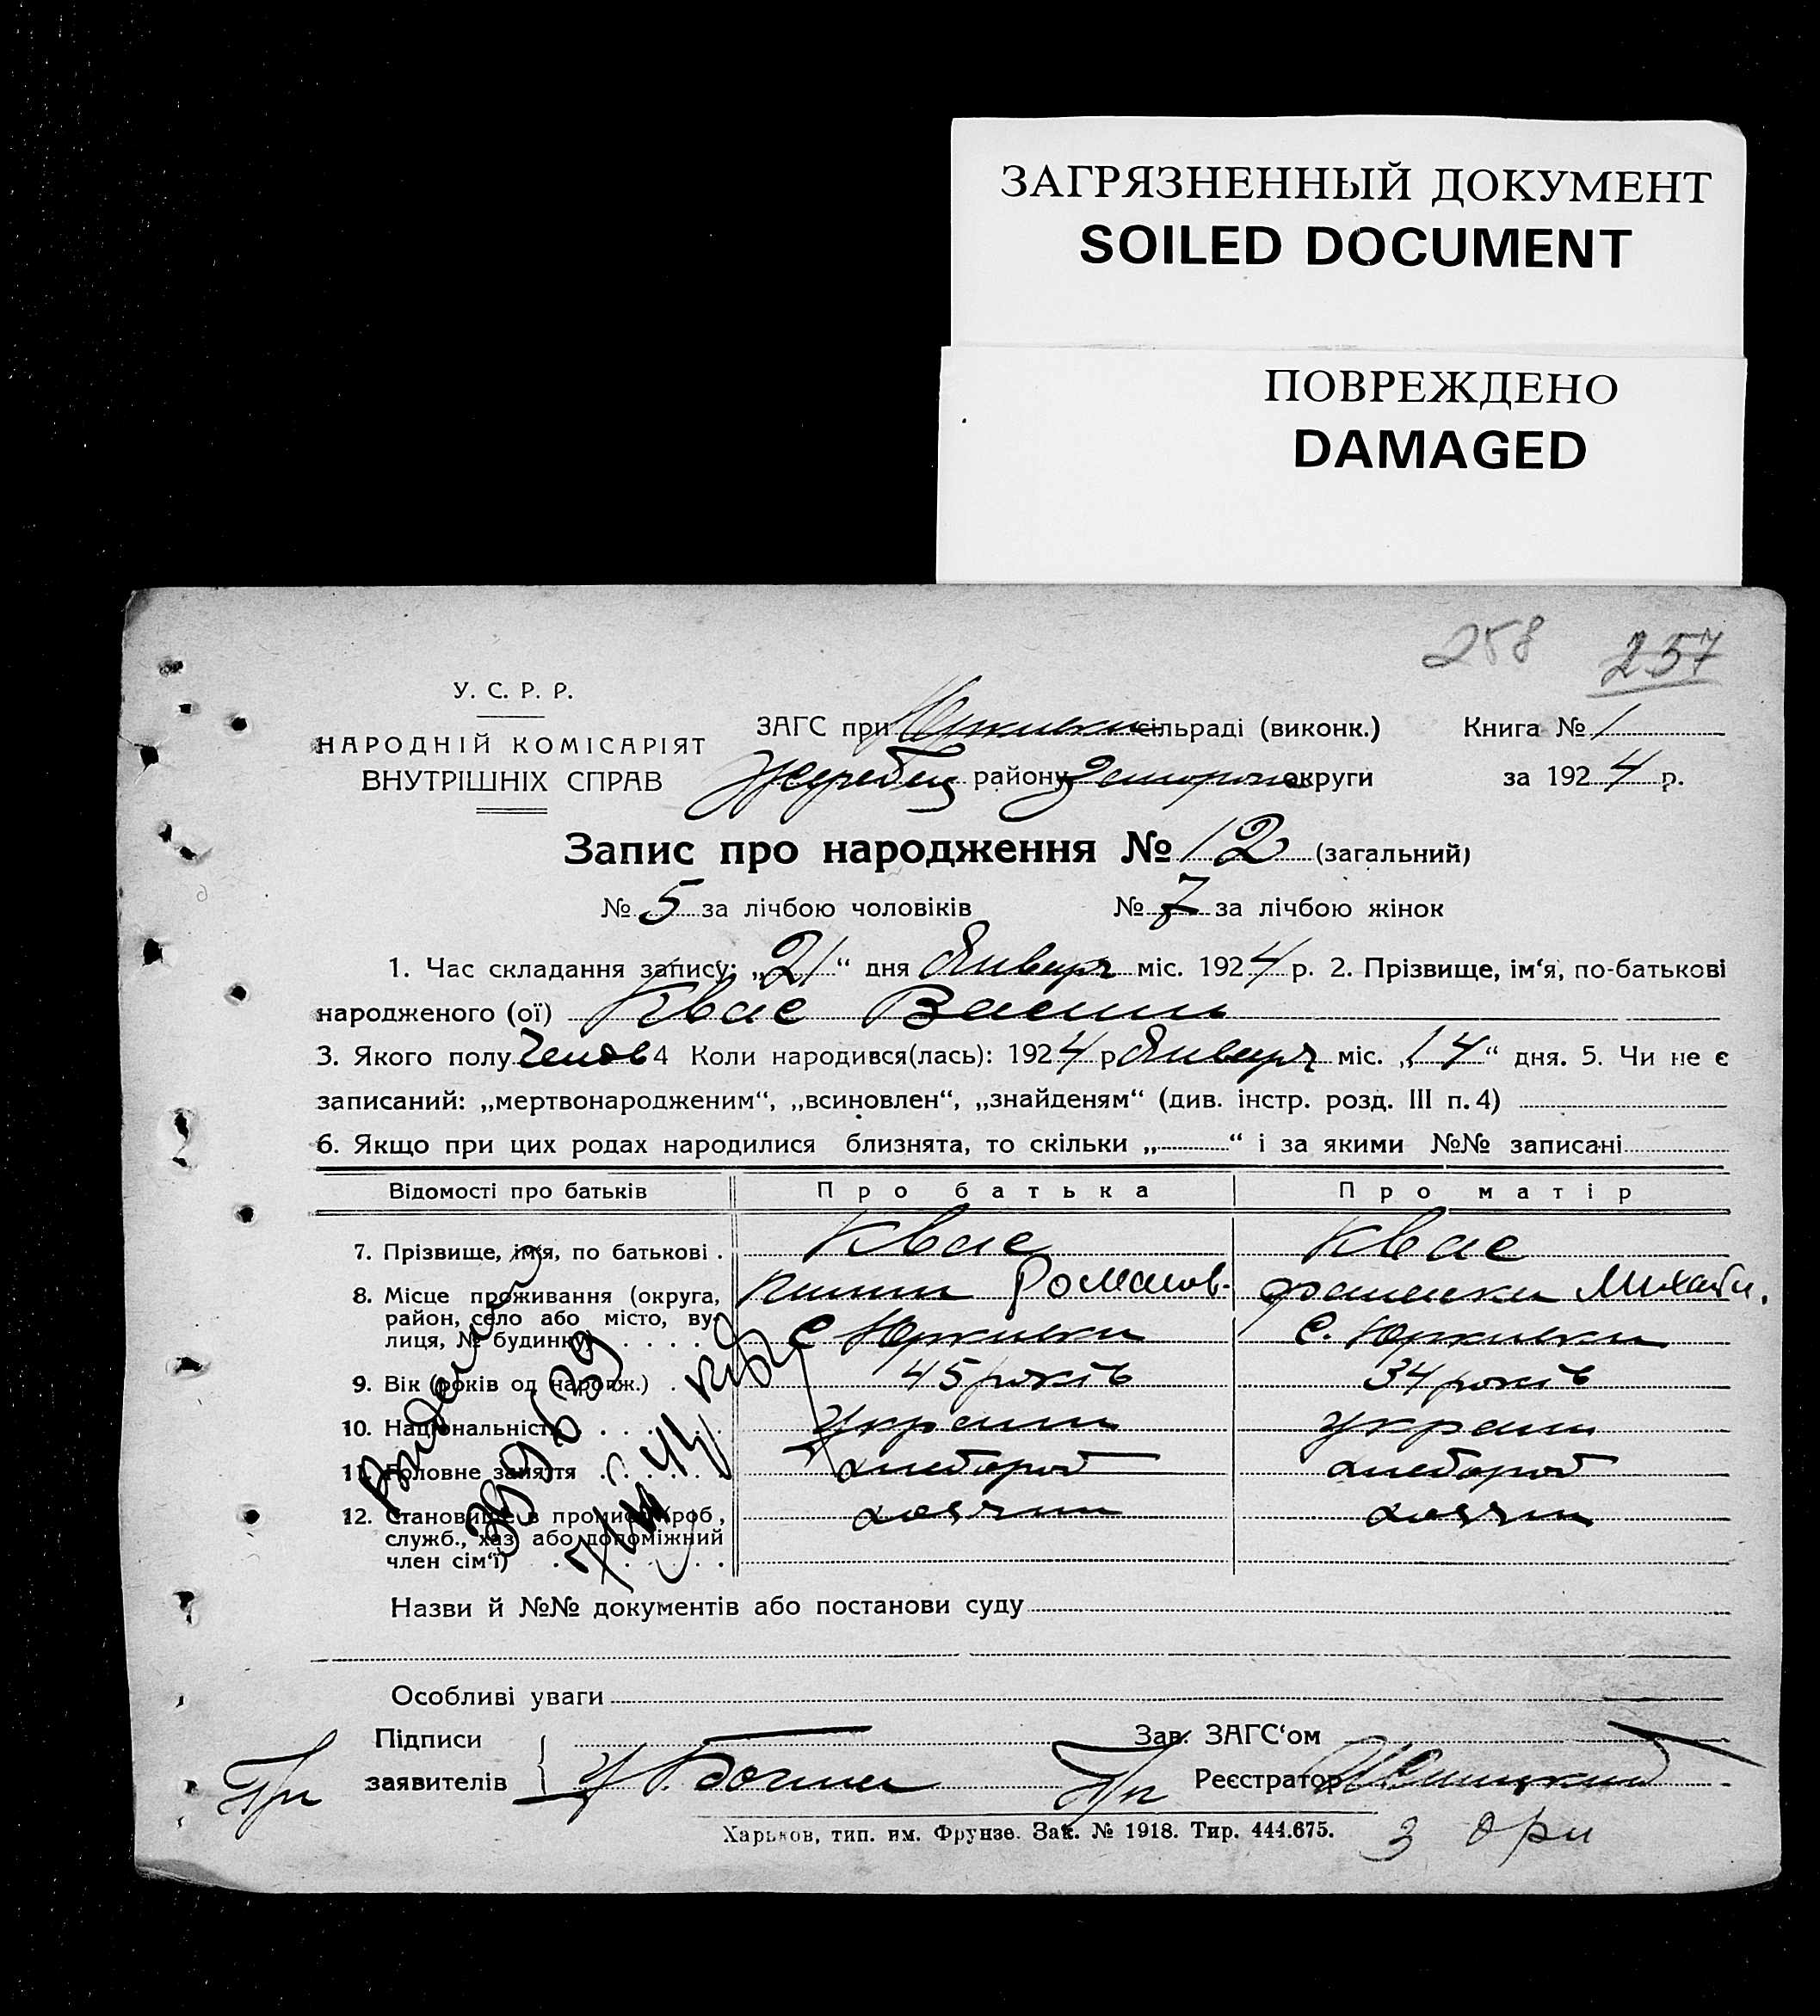 ЗАГРЯЗНЕННЫЙ ДОКУМЕНТ
SOILED DOCUMENT
ПОВРЕЖДЕНО
DAMAGED
258 257
У. С. Р. Р.
НАРОДНІЙ КОМІСАРІЯТ
ВНУТРІШНІХ СПРАВ
ЗАГС при Юркивки сільраді (виконк.) Книга № 1
Жеребец району Запорож округи за 1924 р.
Запис про народження № 12 (загальний)
№ 5 за лічбою чоловіків № 7 за лічбою жінок
1. Час складання запису: „21“ дня Январч міс. 1924 р. 2. Прізвище, ім‘я, по-батькові
народженого (ої) Квас Василь
3. Якого полу 4 Коли народився(лась): 1924 р Январч міс. „14“ дня. 5. Чи не є
записаний: „мертвонародженим“, „всиновлен“, „знайденям“ (див. інстр. розд. III п. 4)
6. Якщо при цих родах народилися близнята, то скільки „ “ і за якими №№ записані
Відомості про батьків Про батька Про матір
7. Прізвище, ім‘я, по батькові . Квас Квас
8. Місце проживання (округа, Романов- Михайл.
район, село або місто, ву- с Юркивки с. Юркивки
лиця, № будинку)
9. Вік (років од народж.) . 45 років 34 років
10. Національність украин украин
11. Головне заняття хлебороб хлебороб
12. Становище в промис. (роб., хозяин хозяин
служб., хаз. або допоміжний
член сім‘ї)
Назви й №№ документів або постанови суду
Особливі уваги
Підписи Зав. ЗАГС‘ом
заявителів Реєстратор
Харьков, тип. им. Фрунзе. Зак. № 1918. Тир. 444.675.